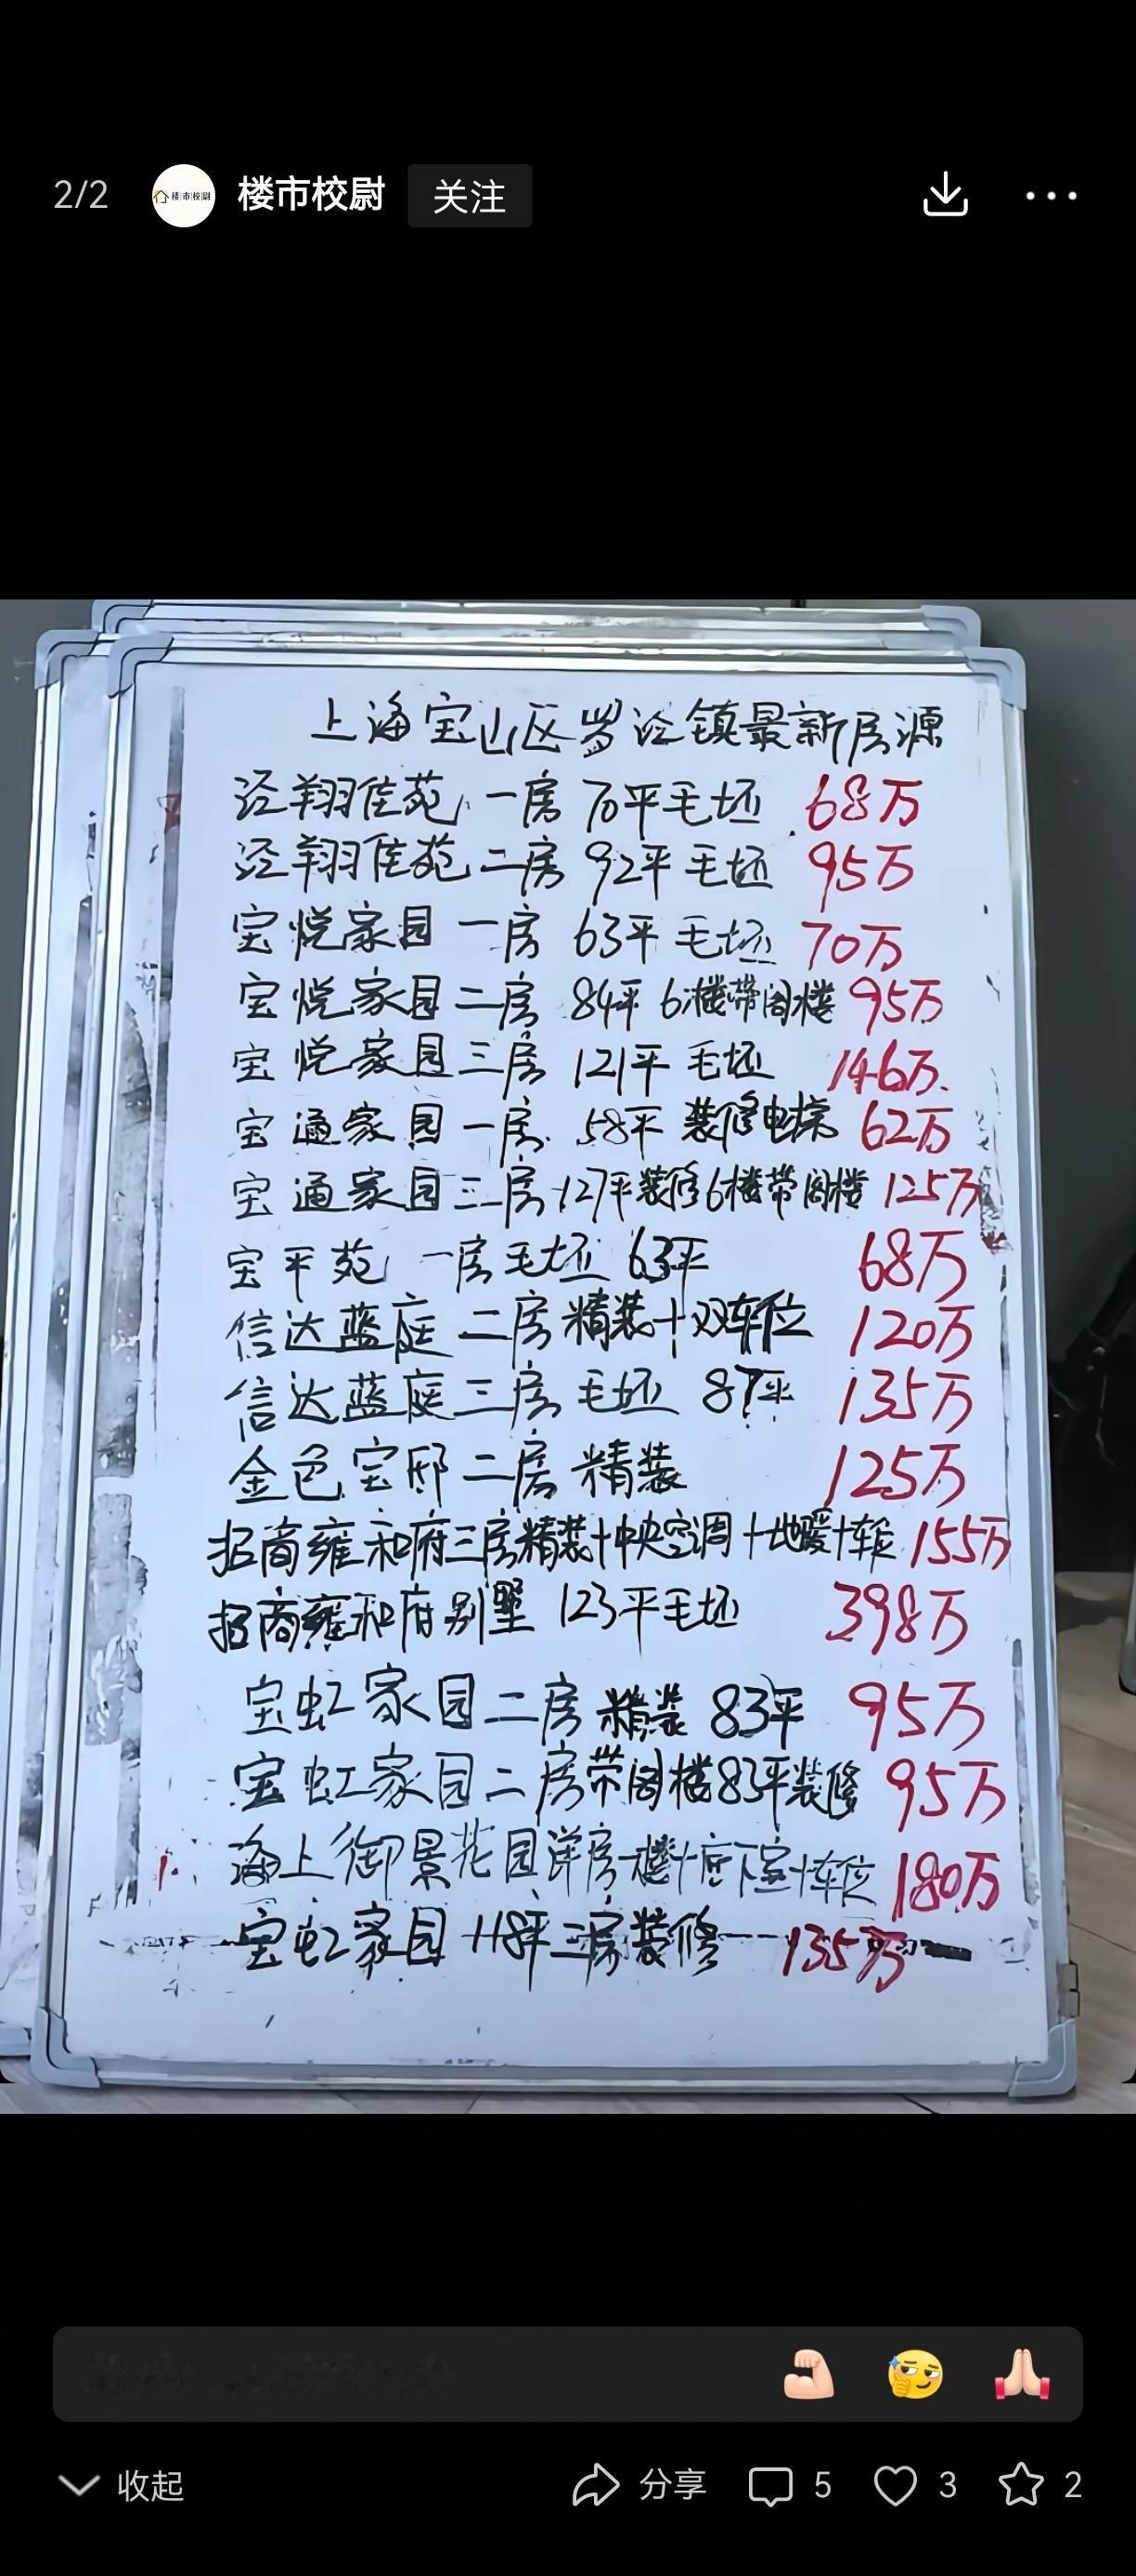 2/2 楼市校尉 关注
上海宝山区罗泾镇最新房源
泾翔佳苑 一房 70平毛坯 68万
泾翔佳苑 二房 92平 毛坯 95万
宝悦家园 一房 63平 毛坯 70万
宝悦家园 二房 84平 6楼带阁楼 95万
宝悦家园 三房 121平 毛坯 146万
宝通家园 一房 58平 装修电梯 62万
宝通家园 三房 127平装修6楼带阁楼 125万
宝平苑 一房毛坯 63平 68万
信达蓝庭 二房 精装+双车位 120万
信达蓝庭 三房 毛坯 87平 135万
金色宝邸 二房 精装 125万
招商雍和府三房精装+中央空调+地暖+车位 155万
招商雍和府别墅 123平毛坯 398万
宝虹家园 二房 精装 83平 95万
宝虹家园 二房带阁楼83平装修 95万
海上御景花园洋房一楼+地下室+车位 180万
宝虹家园 118平三房装修 135万
收起 分享 5 3 2